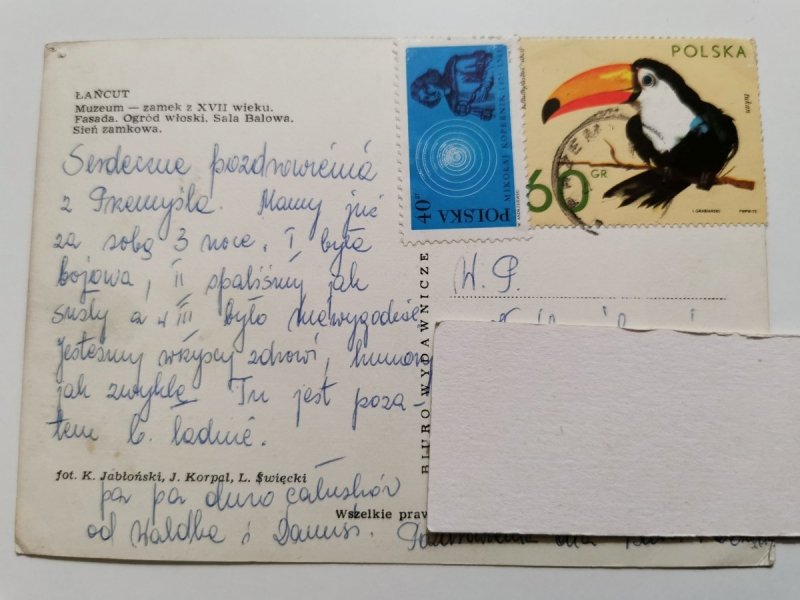 ŁAŃCUT
Muzeum — zamek z XVII wieku.
Fasada. Ogród włoski. Sala Balowa.
Sień zamkowa.
Serdeczne pozdrowienia
z Przemyśla. Mamy już
za sobą 3 noce. I była
bojowa, II spaliśmy jak
susły a w III było niewygodnie
Jesteśmy wszyscy zdrowi, humory
jak zwykle. Tu jest poza-
tem b. ładnie.
fot. K. Jabłoński, J. Korpal, L. Święcki
pa pa dużo całusków
od Waldka i Danusi.
Wszelkie praw
Pozdrowienia dla
BIURO WYDAWNICZE
W. P.
40 gr
POLSKA
MIKOŁAJ KOPERNIK
POLSKA
tukan
60 GR